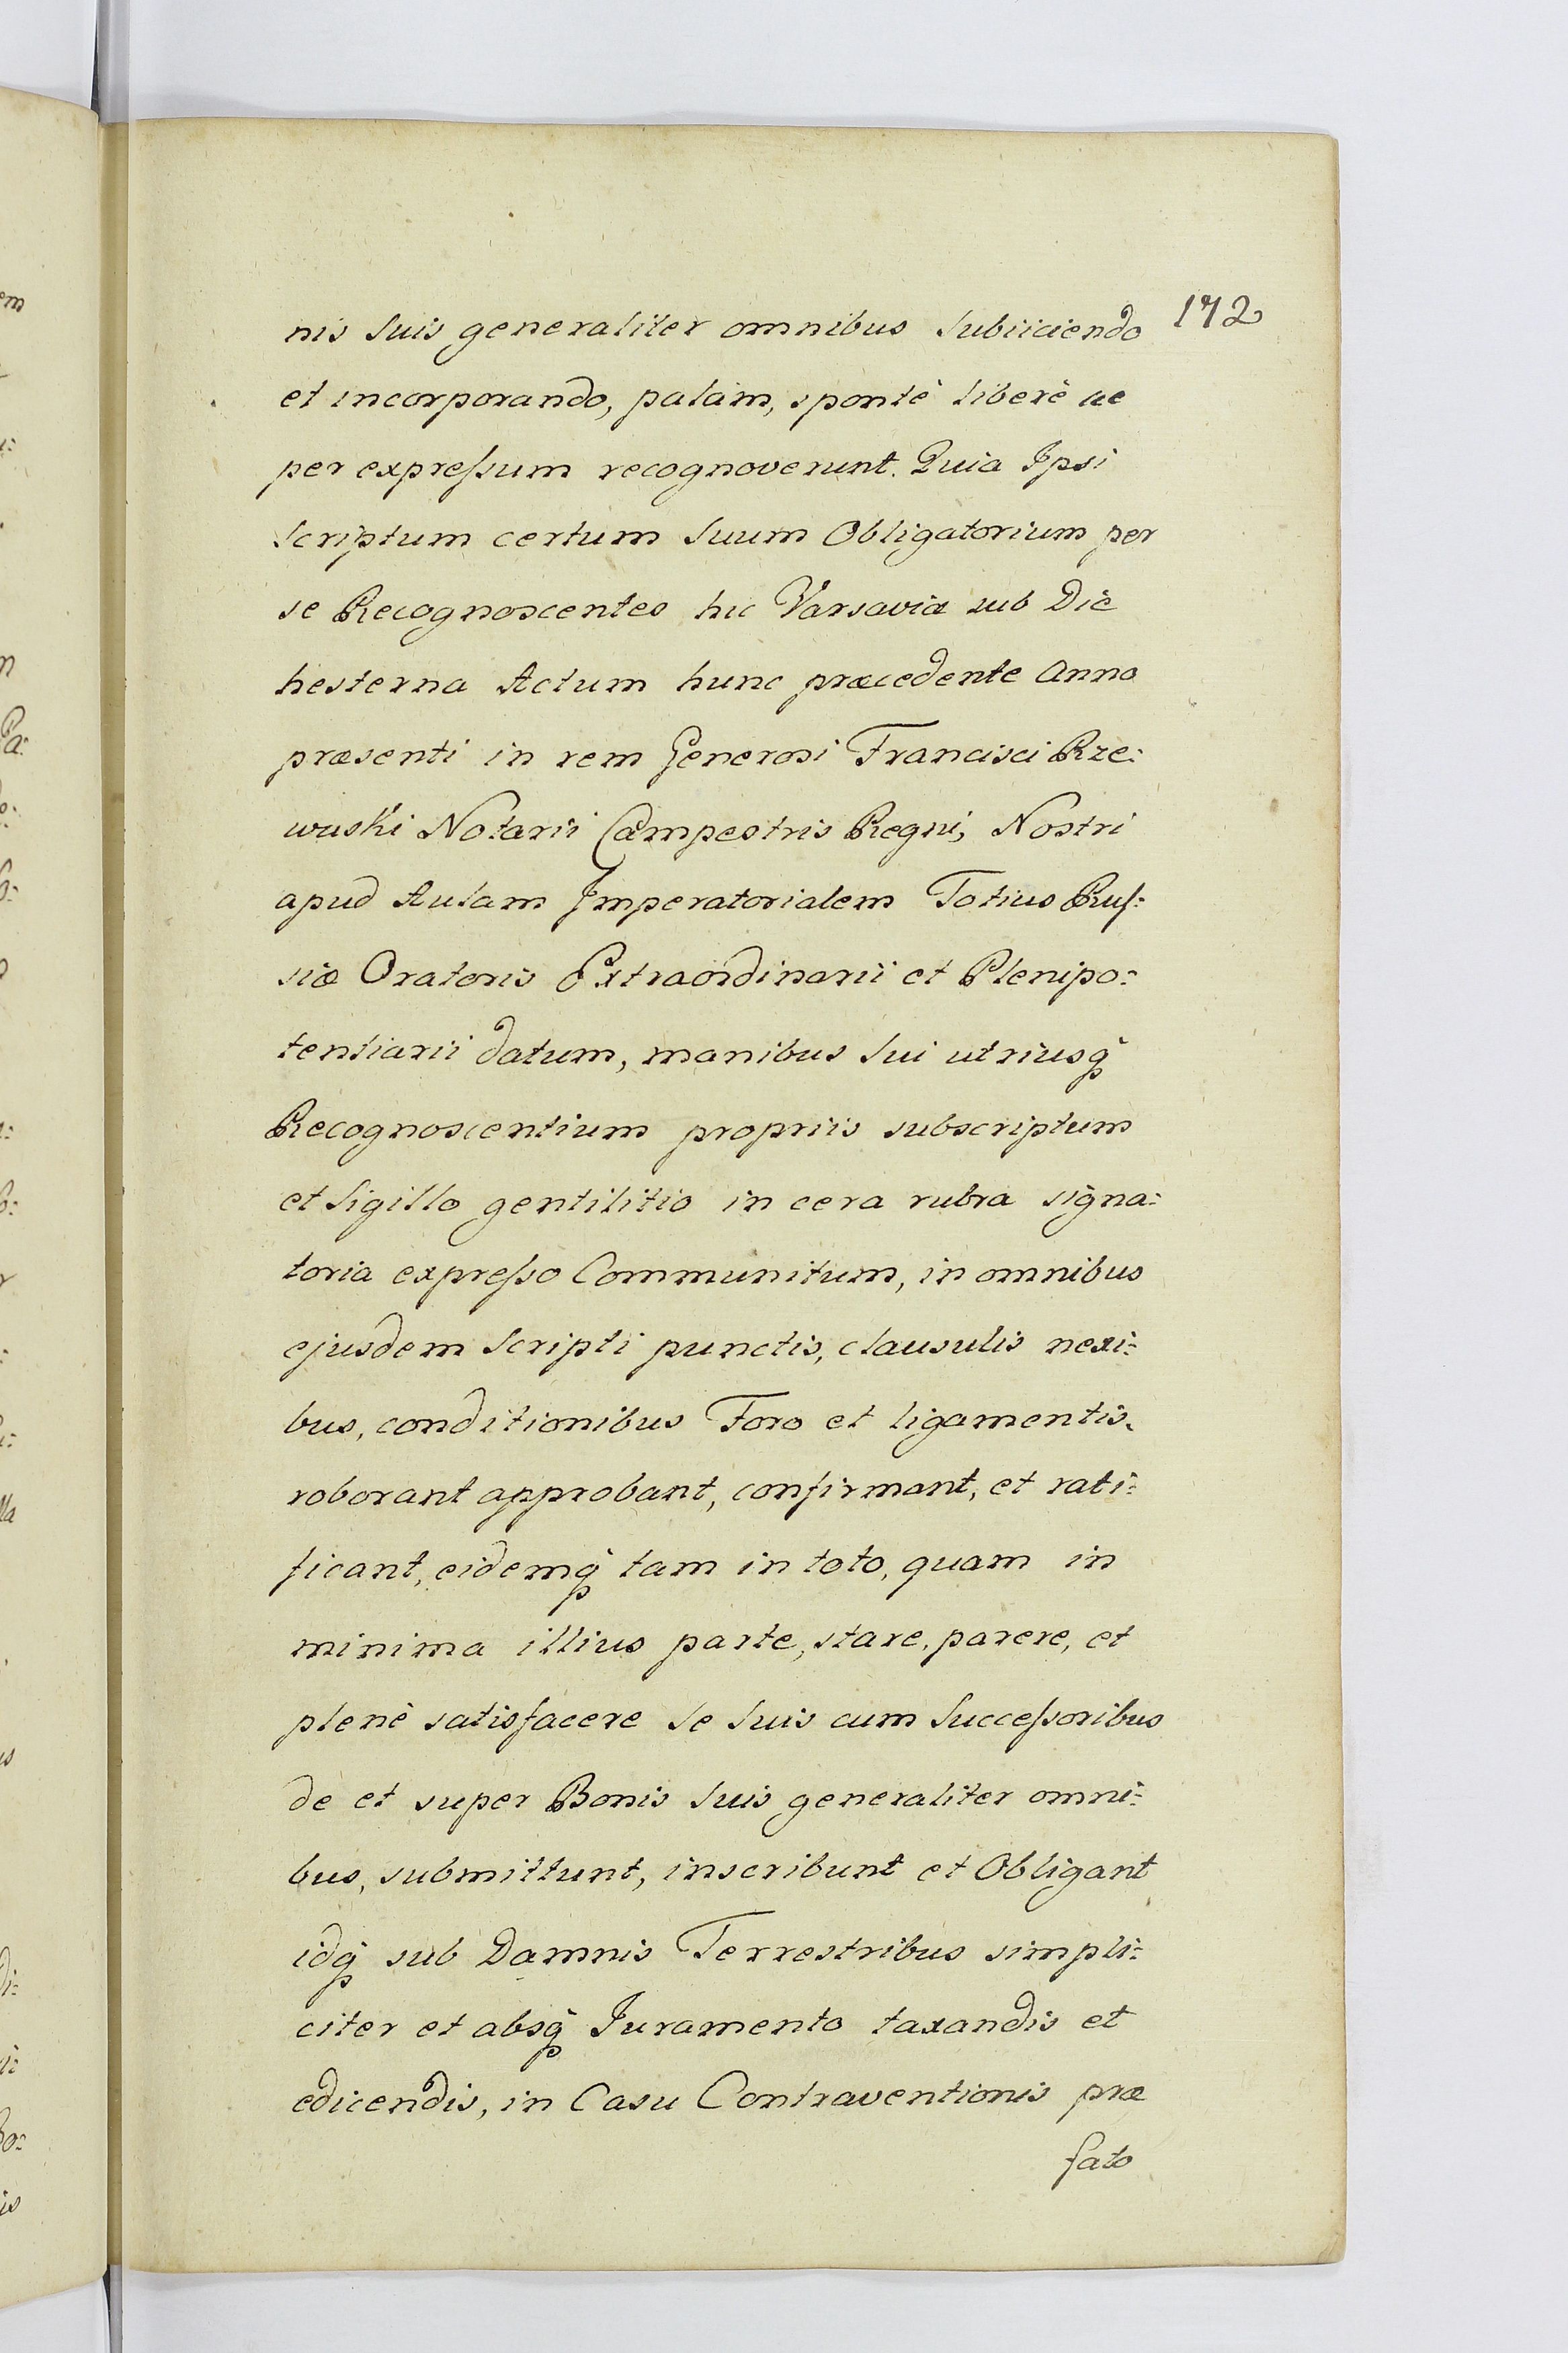 172
nis suis generaliter omnibus subiiciendo
et incorporando, palàm, spontè liberè ac
per expreſsum recognoverunt. Quia Ipsi
scriptum certum suum Obligatorium per
se Recognoscentes hic Varsaviæ sub Die
hesterna Actum hunc præcedente Anno
præsenti in rem Generosi Francisci Rze:
wuski Notarii Campestris Regni, Nostri
apud Aulam Imperatorialem Totius Ruſ:
siæ Oratoris Extraordinarii et Plenipo:
tentiarii datum, manibus sui utriusq́
Recognoscentium propriis subscriptum
et Sigillo gentilitio in cera rubra signa:
toria expreſso Communitum, in omnibus
ejusdem Scripti punctis, clausulis nexi:
bus, conditionibus Foro et ligamentis,
roborant approbant, confirmant, et rati:
ficant, eidemq́ tam in toto, quam in
minima illius parte, stare, parere, et
plenè satisfacere se suis cum Succeſsoribus
de et super Bonis suis generaliter omni:
bus, submittunt, inscribunt et Obligant
idq́ sub Damnis Terrestribus simpli:
citer et absq́ Iuramento taxandis et
edicendis, in Casu Contraventionis præ
fato
em
Pa:
lla
di:
Bo:
is